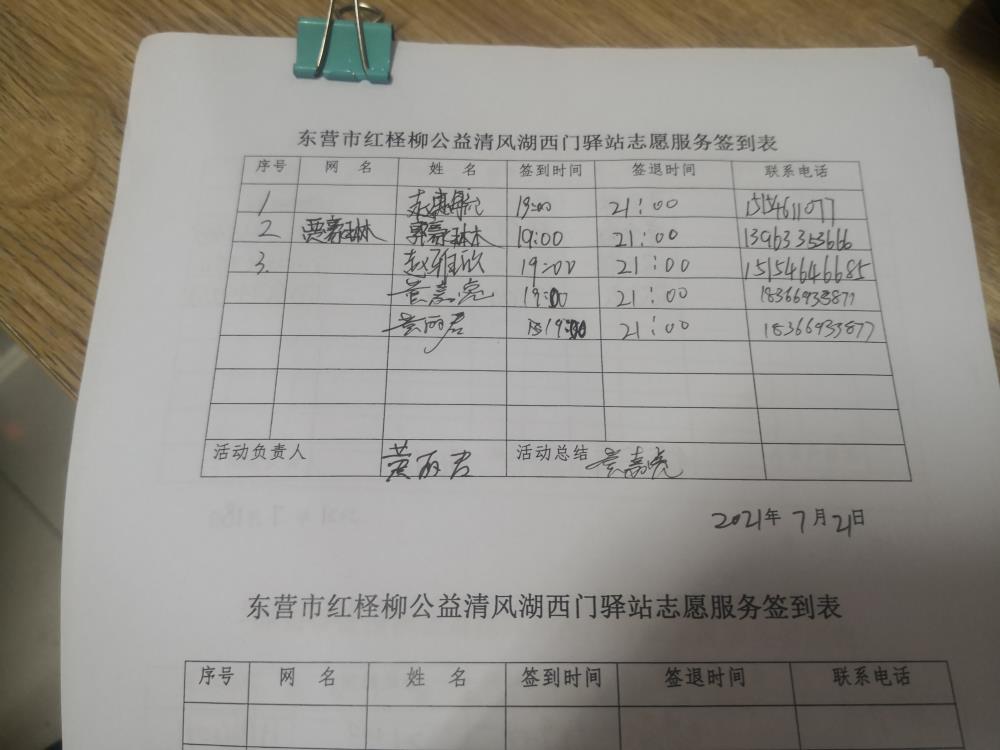 东营市红柽柳公益清风湖西门驿站志愿服务签到表
序号 网 名 姓 名 签到时间 签退时间 联系电话
1 19:00 21:00 15154611077
2 贾豪琳 19:00 21:00 13963353666
3. 赵雅欣 19:00 21:00 15154646685
黄嘉亮 19:00 21:00 18366933877
黄丽君 19:00 21:00 18366933877
活动负责人 黄丽君 活动总结 黄嘉亮
2021年 7月21日
东营市红柽柳公益清风湖西门驿站志愿服务签到表
序号 网 名 姓 名 签到时间 签退时间 联系电话